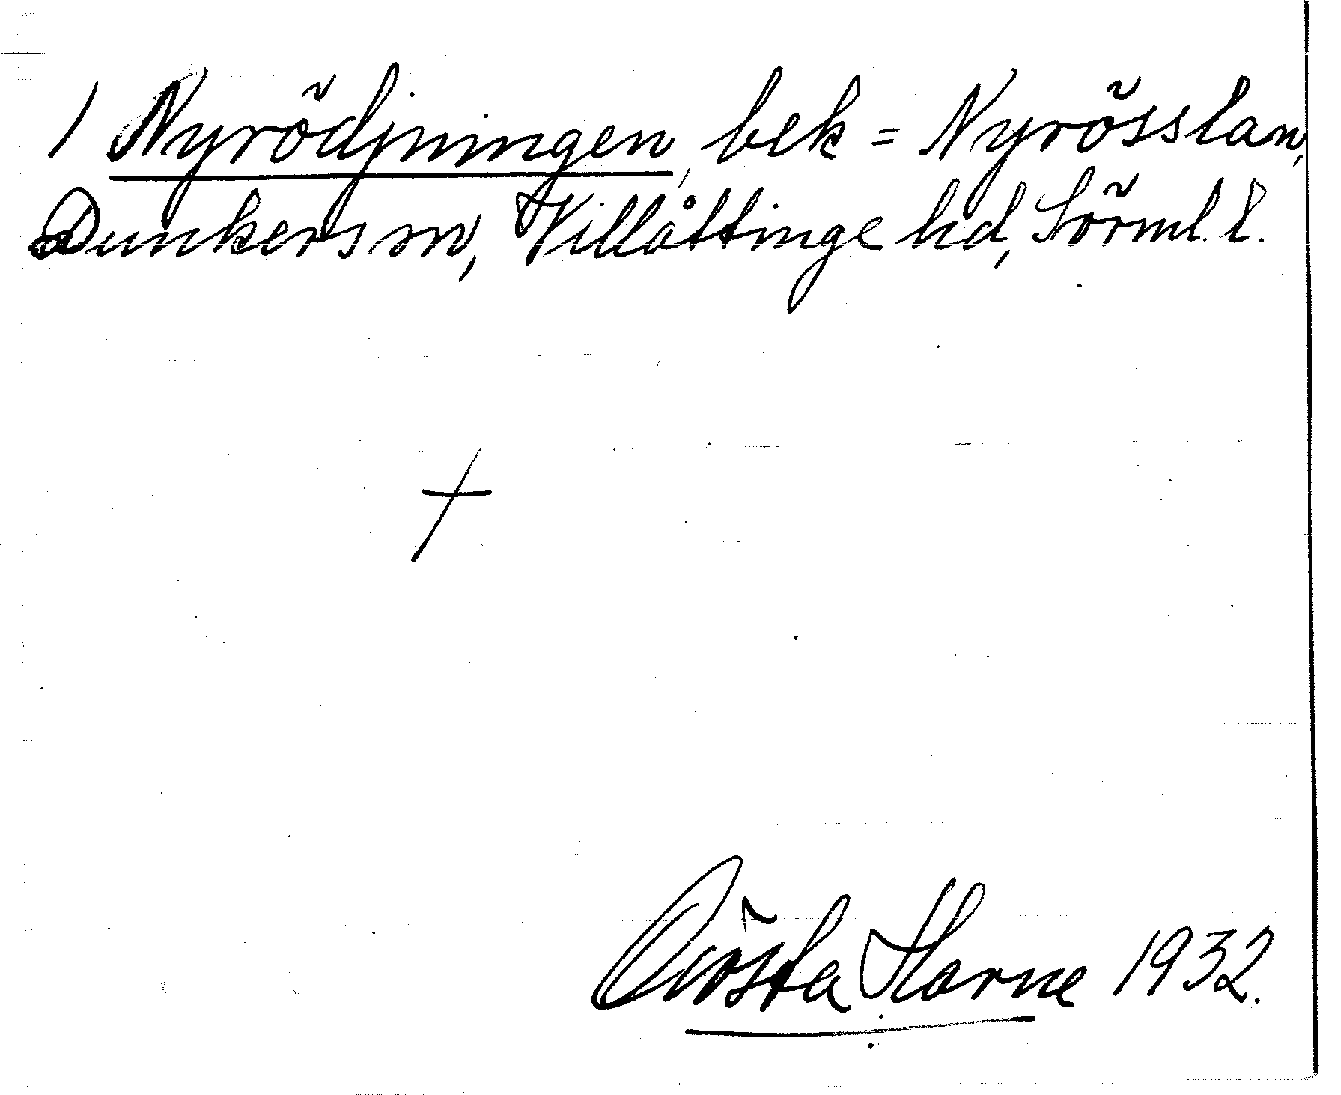 / Nyrödjningen, bek = Nyrösslan,
Dunkers sn, Villåttinge hd, Sörml. l.
Gösta Harne 1932.